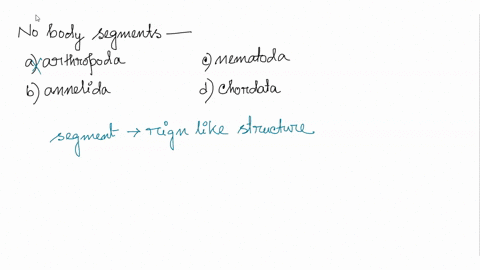 No body segments —
a) arthropoda c) nematoda
b) annelida d) chordata
segment → rign like structure